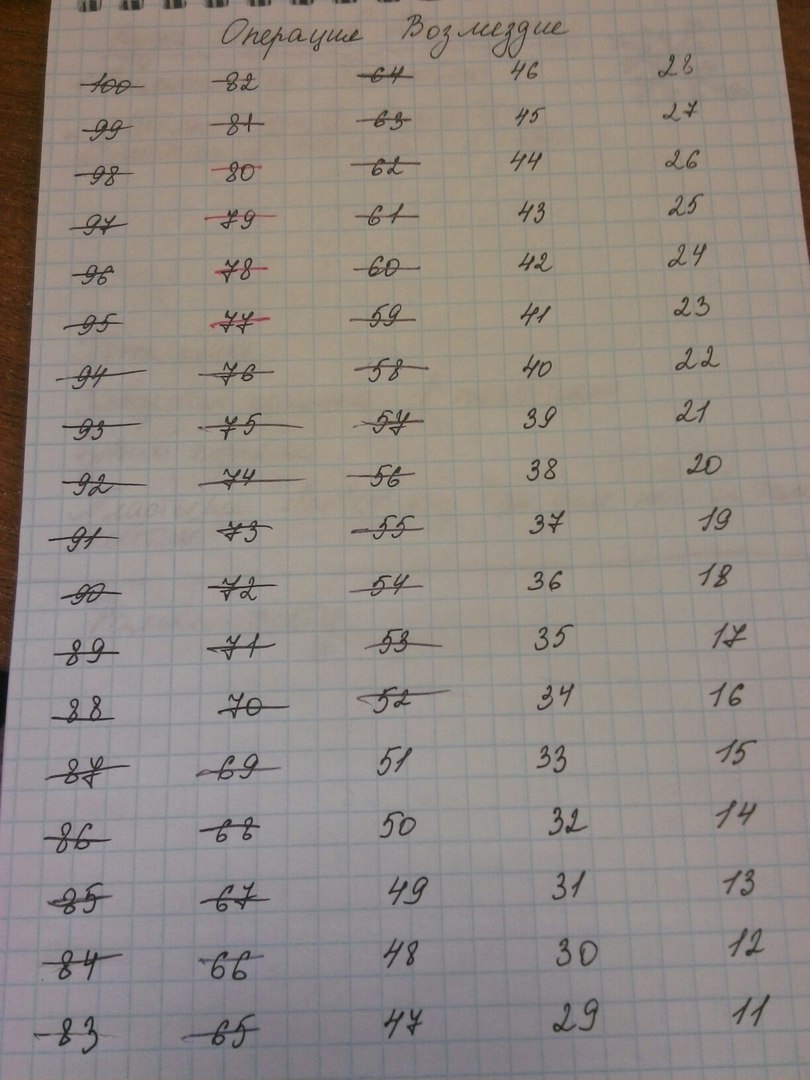 Операция Возмездие
100 82 64 46 28
99 81 63 45 27
98 80 62 44 26
97 79 61 43 25
96 78 60 42 24
95 77 59 41 23
94 76 58 40 22
93 75 57 39 21
92 74 56 38 20
91 73 55 37 19
90 72 54 36 18
89 71 53 35 17
88 70 52 34 16
87 69 51 33 15
86 68 50 32 14
85 67 49 31 13
84 66 48 30 12
83 65 47 29 11